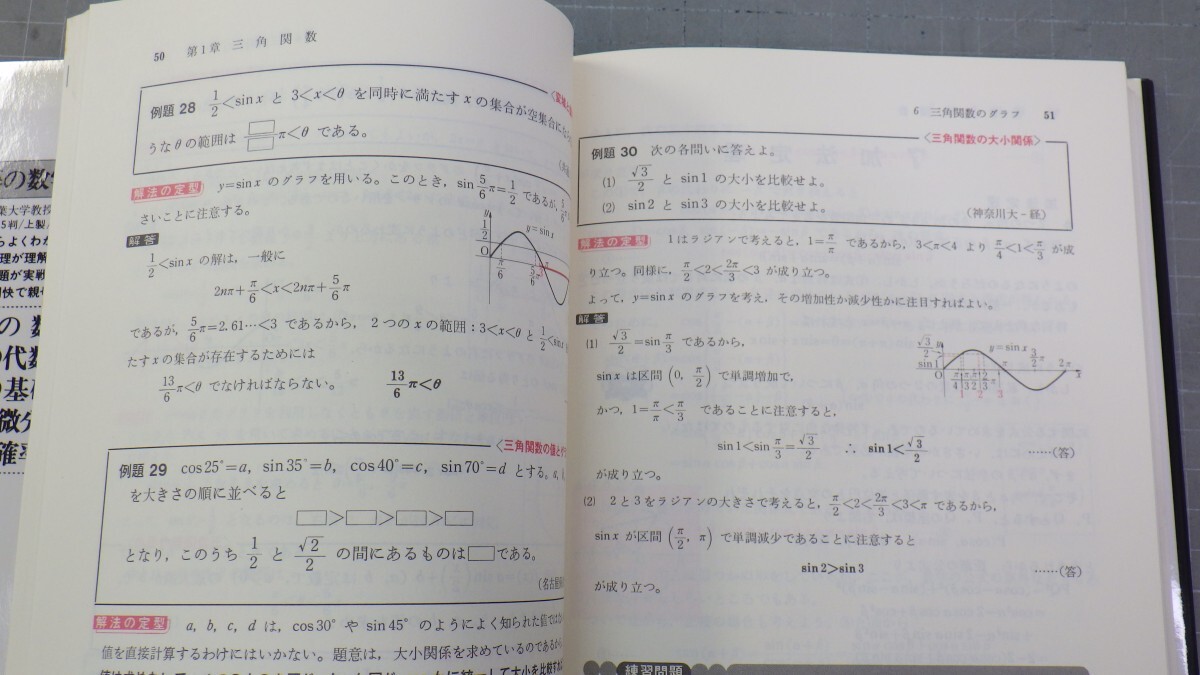 50 第1章 三角関数
例題 28 1/2<sinx と 3<x<θ を同時に満たす x の集合が空集合に
うな θ の範囲は □/□π<θ である。
解法の定型 y=sinx のグラフを用いる。このとき, sin5/6π=1/2 であるが,
さいことに注意する。
解答
1/2<sinx の解は, 一般に
2nπ+π/6<x<2nπ+5/6π
であるが, 5/6π=2.61…<3 であるから, 2つの x の範囲:3<x<θ と 1/2<sin
たす x の集合が存在するためには
13/6π<θ でなければならない。 13/6π<θ
y
1/2
O
y=sinx
π/6
5/6π
〈三角関数の値と
例題 29 cos25°=a, sin35°=b, cos40°=c, sin70°=d とする。a,
を大きさの順に並べると
□>□>□>□
となり, このうち 1/2 と √2/2 の間にあるものは□である。
(名古屋
解法の定型 a, b, c, d は, cos30° や sin45° のようによく知られた値では
値を直接計算するわけにはいかない。題意は, 大小関係を求めているのである
して大小を比較す
6 三角関数のグラフ 51
〈三角関数の大小関係〉
例題 30 次の各問いに答えよ。
(1) √3/2 と sin1 の大小を比較せよ。
(2) sin2 と sin3 の大小を比較せよ。
(神奈川大－経)
解法の定型 1はラジアンで考えると, 1=π/π であるから, 3<π<4 より π/4<1<π/3 が成
り立つ。同様に, π/2<2<2π/3<3 が成り立つ。
よって, y=sinx のグラフを考え, その増加性か減少性かに注目すればよい。
解答
(1) √3/2=sinπ/3 であるから,
sinx は区間 (0, π/2) で単調増加で,
かつ, 1=π/π<π/3 であることに注意すると,
sin1<sinπ/3=√3/2 ∴ sin1<√3/2 ……(答)
が成り立つ。
y
√3/2
sin1
O
y=sinx
π
3/2π
2π
x
1 2 3
(2) 2と3をラジアンの大きさで考えると, π/2<2<2π/3<3<π であるから,
sinx が区間 (π/2, π) で単調減少であることに注意すると
sin2>sin3 ……(答)
が成り立つ。
練習問題
の数
葉大学教授
5判/上製
らよくわか
理が理解
題が実戦
快で親
の 数
の代数
の基
微分
確率